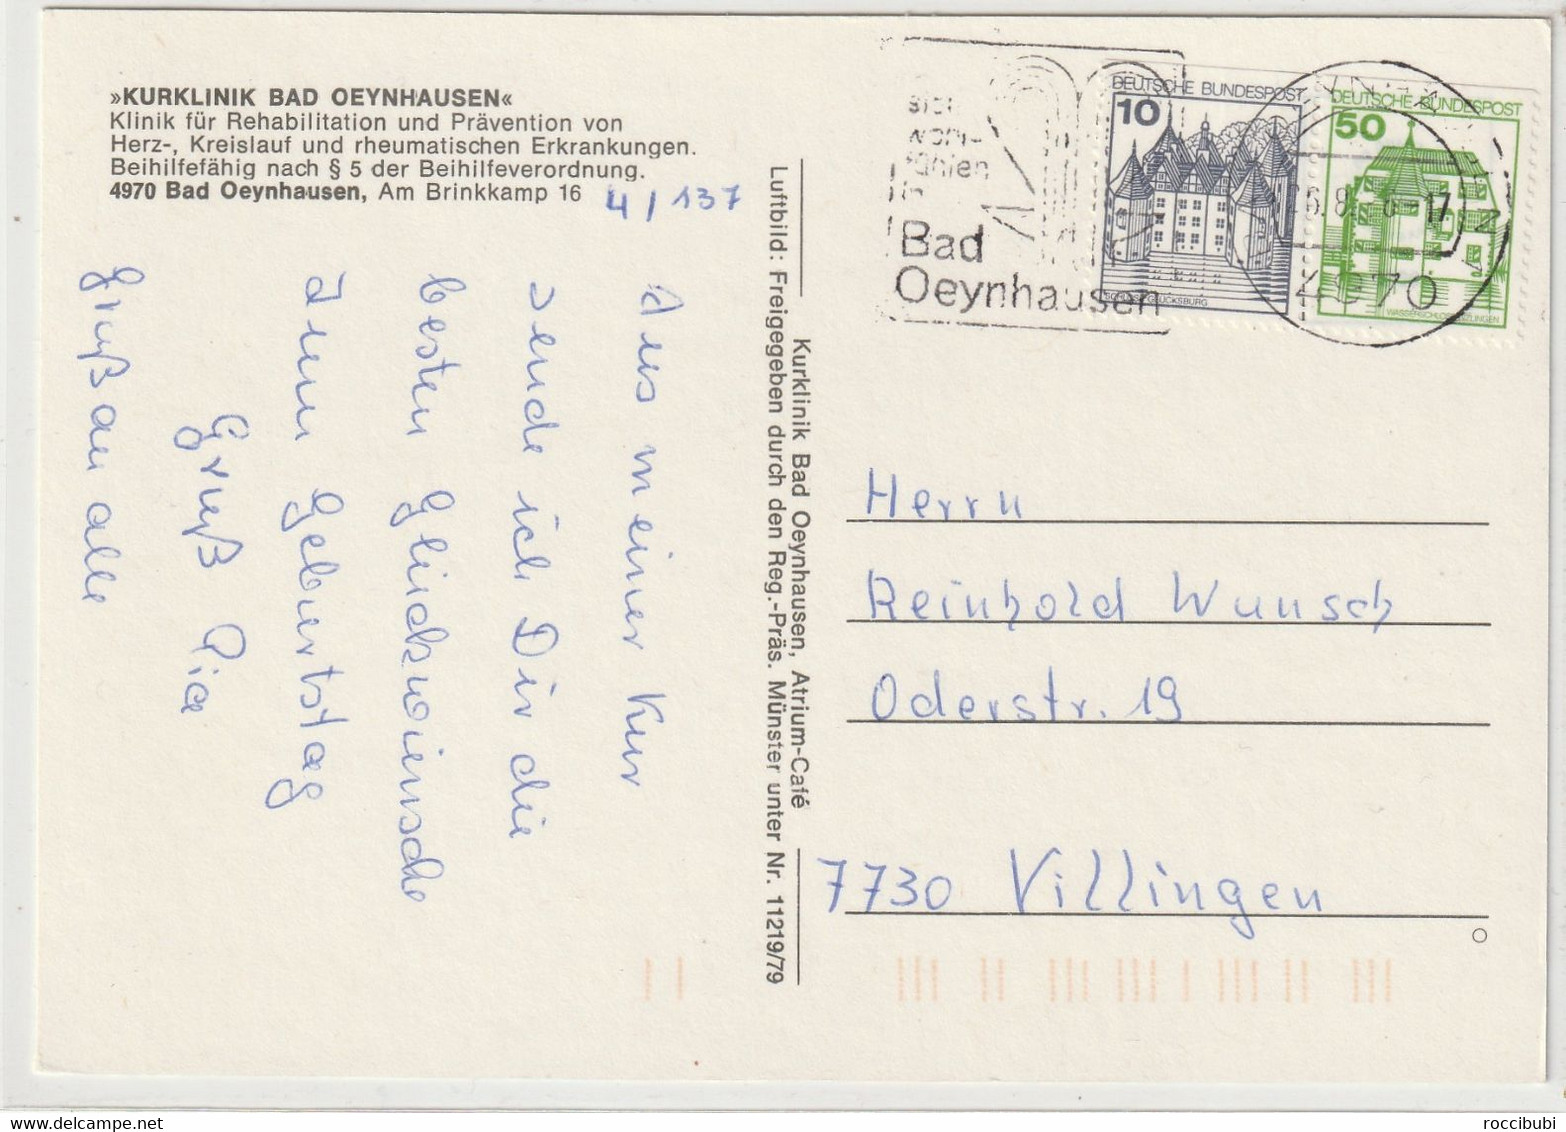 »KURKLINIK BAD OEYNHAUSEN«
Klinik für Rehabilitation und Prävention von
Herz-, Kreislauf und rheumatischen Erkrankungen.
Beihilfefähig nach § 5 der Beihilfeverordnung.
4970 Bad Oeynhausen, Am Brinkkamp 16
4/137
Aus meiner Kur
sende ich Dir die
besten Glückwünsche
zum Geburtstag
Gruß Pia
Gruß an alle
Kurklinik Bad Oeynhausen, Atrium-Café
Luftbild: Freigegeben durch den Reg.-Präs. Münster unter Nr. 11219/79
sich
wohl-
fühlen
in
Bad
Oeynhausen
DEUTSCHE BUNDESPOST
10
SCHLOSS GLÜCKSBURG
DEUTSCHE BUNDESPOST
50
WASSERSCHLOSS INZLINGEN
-17
4970
Herrn
Reinhold Wunsch
Oderstr. 19
7730 Villingen
roccibubi